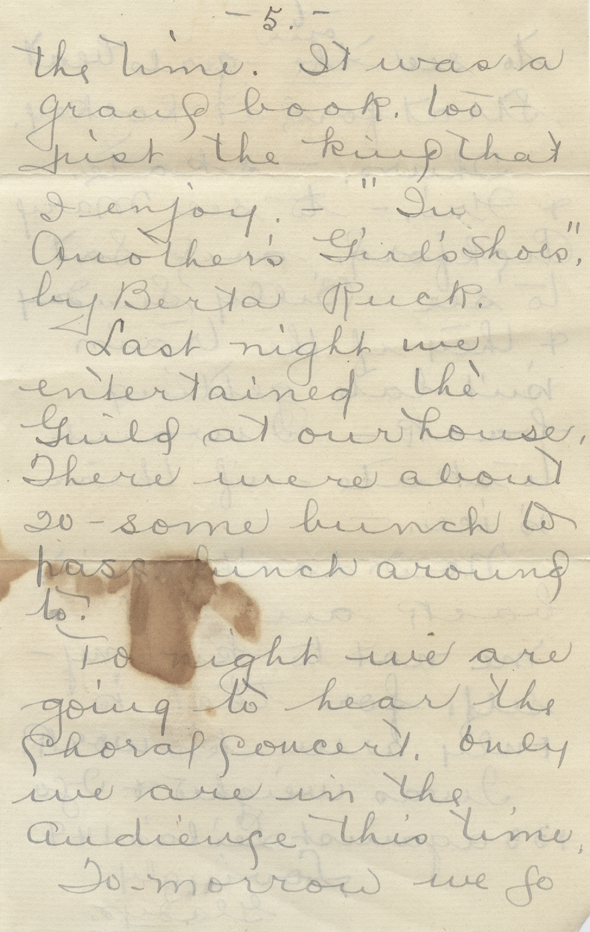 - 5. -
the time. It was a
grand book. too -
just the kind that
I enjoy. - "In
Another's Girl's Shoes",
by Berta Ruck.
Last night we
entertained the
Guild at our house.
There were about
20 - some bunch to
pass lunch around
to.
To night we are
going to hear the
Choral Concert, only
we are in the
Audience this time.
To-morrow we go